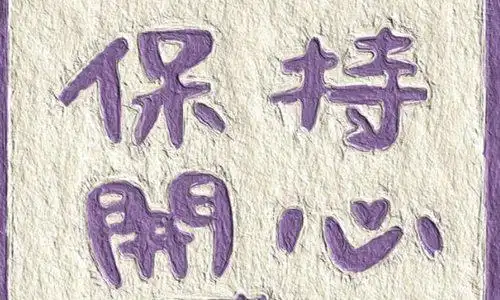 保持
開心